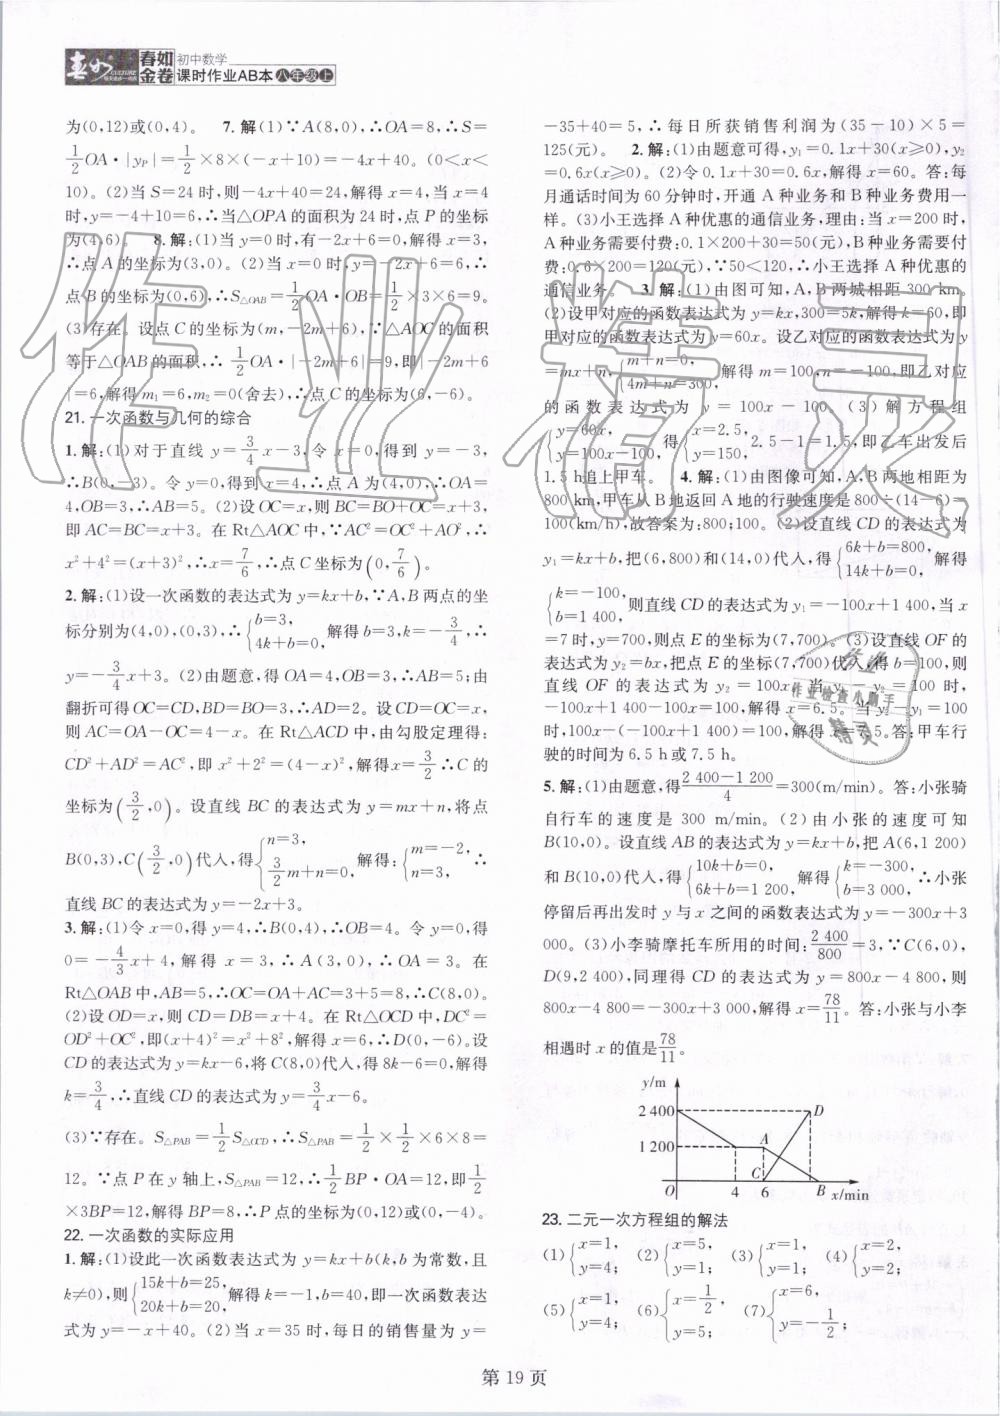 春如金卷 初中数学
课时作业AB本 八年级上
为(0,12)或(0,4)。 7.解(1)∵A(8,0),∴OA=8,∴S=
1/2 OA·|yP|=1/2×8×(-x+10)=-4x+40。(0<x<
10)。(2)当S=24时,则-4x+40=24,解得x=4,当x=4
时,y=-4+10=6,∴当△OPA的面积为24时,点P的坐标
为(4,6)。 8.解:(1)当y=0时,有-2x+6=0,解得x=3,
∴点A的坐标为(3,0)。(2)当x=0时,y=-2x+6=6,∴
点B的坐标为(0,6),∴S△OAB=1/2 OA·OB=1/2×3×6=9。
(3)存在。设点C的坐标为(m,-2m+6),∵△AOC的面积
等于△OAB的面积,∴1/2 OA·|-2m+6|=9,即|-2m+6
|=6,解得m1=6,m2=0(舍去),∴C(6,-6)。
21.一次函数与几何的综合
1.解:(1)对于直线y=3/4 x-3,令x=0,得到y=-3,
∴B(0,-3)。令y=0,得到x=4,∴点A为(4,0),∴OA=
4,OB=3,∴AB=5。(2)设OC=x,则BC=BO+OC=x+3,
即AC=BC=x+3。在Rt△AOC中,∵AC²=OC²+AO²,∴
x²+4²=(x+3)²,∴x=7/6,∴点C坐标为(0,7/6)。
2.解:(1)设一次函数的表达式为y=kx+b,∵A,B两点的坐
标分别为(4,0),(0,3),∴{b=3, 4k+b=0, 解得b=3,k=-3/4,∴
y=-3/4 x+3。(2)由题意,得OA=4,OB=3,∴AB=5;由
翻折可得OC=CD,BD=BO=3,∴AD=2。设CD=OC=x,
则AC=OA-OC=4-x。在Rt△ACD中,由勾股定理得:
CD²+AD²=AC²,即x²+2²=(4-x)²,解得x=3/2∴C的
坐标为(3/2,0)。设直线BC的表达式为y=mx+n,将点
B(0,3),C(3/2,0)代人,得{n=3, 3/2 m+n=0, 解得:{m=-2, n=3, ∴
直线BC的表达式为y=-2x+3。
3.解:(1)令x=0,得y=4,∴B(0,4),∴OB=4。令y=0,得
0=-4/3 x+4,解得x=3,∴A(3,0),∴OA=3。在
Rt△OAB中,AB=5,∴OC=OA+AC=3+5=8,∴C(8,0)。
(2)设OD=x,则CD=DB=x+4。在Rt△OCD中,DC²=
OD²+OC²,即(x+4)²=x²+8²,解得x=6,∴D(0,-6)。设
CD的表达式为y=kx-6,将C(8,0)代人,得8k-6=0,解得
k=3/4,∴直线CD的表达式为y=3/4 x-6。
(3)∵存在。S△PAB=1/2 S△OCD,∴S△PAB=1/2×1/2×6×8=
12。∵点P在y轴上,S△PAB=12,∴1/2 BP·OA=12,即1/2
×3BP=12,解得BP=8,∴P点的坐标为(0,12)或(0,-4)。
22.一次函数的实际应用
1.解:(1)设此一次函数表达式为y=kx+b(k,b为常数,且
k≠0),则{15k+b=25, 20k+b=20, 解得k=-1,b=40,即一次函数表达
式为y=-x+40。(2)当x=35时,每日的销售量为y=
-35+40=5,∴每日所获销售利润为(35-10)×5=
125(元)。 2.解:(1)由题意可得,y1=0.1x+30(x≥0),y2
=0.6x(x≥0)。(2)令0.1x+30=0.6x,解得x=60。答:每
月通话时间为60分钟时,开通A种业务和B种业务费用一
样。(3)小王选择A种优惠的通信业务,理由:当x=200时,
A种业务需要付费:0.1×200+30=50(元),B种业务需要付
费:0.6×200=120(元),∵50<120,∴小王选择A种优惠的
通信业务。 3.解:(1)由图可知,A,B两城相距300 km。
(2)设甲对应的函数表达式为y=kx,300=5k,解得k=60,即
甲对应的函数表达式为y=60x。设乙对应的函数表达式为y
=mx+n,{m+n=0, 4m+n=300, 解得m=100,n=-100,即乙对应
的函数表达式为y=100x-100。(3)解方程组
{y=60x, y=100x-100, 得{x=2.5, y=150, 2.5-1=1.5,即乙车出发后
1.5 h追上甲车。 4.解:(1)由图像可知,A,B两地相距为
800 km,甲车从B地返回A地的行驶速度是800÷(14-6)=
100(km/h),故答案为:800;100。(2)设直线CD的表达式为
y1=kx+b,把(6,800)和(14,0)代人,得{6k+b=800, 14k+b=0, 解得
{k=-100, b=1 400, 则直线CD的表达式为y1=-100x+1 400,当x
=7时,y=700,则点E的坐标为(7,700)。(3)设直线OF的
表达式为y2=bx,把点E的坐标(7,700)代人,得b=100,则
直线OF的表达式为y2=100x。当y1-y2=100时,
-100x+1 400-100x=100,解得x=6.5。当y2-y1=100
时,100x-(-100x+1 400)=100,解得x=7.5。答:甲车行
驶的时间为6.5 h或7.5 h。
5.解:(1)由题意,得(2 400-1 200)/4=300(m/min)。答:小张骑
自行车的速度是300 m/min。(2)由小张的速度可知
B(10,0)。设直线AB的表达式为y=kx+b,把A(6,1 200)
和B(10,0)代人,得{10k+b=0, 6k+b=1 200, 解得{k=-300, b=3 000, ∴小张
停留后再出发时y与x之间的函数表达式为y=-300x+3
000。(3)小李骑摩托车所用的时间:2 400/800=3,∵C(6,0),
D(9,2 400),同理得CD的表达式为y=800x-4 800,则
800x-4 800=-300x+3 000,解得x=78/11。答:小张与小李
相遇时x的值是78/11。
y/m
2 400 D
1 200 A
C
O 4 6 B x/min
23.二元一次方程组的解法
(1){x=1, y=4; (2){x=5, y=1; (3){x=1, y=1; (4){x=2, y=2;
(5){x=1, y=4; (6){x=1/2, y=5; (7){x=6, y=-1/2;
第 19 页
作业精灵
作业
作业检查小助手
精灵